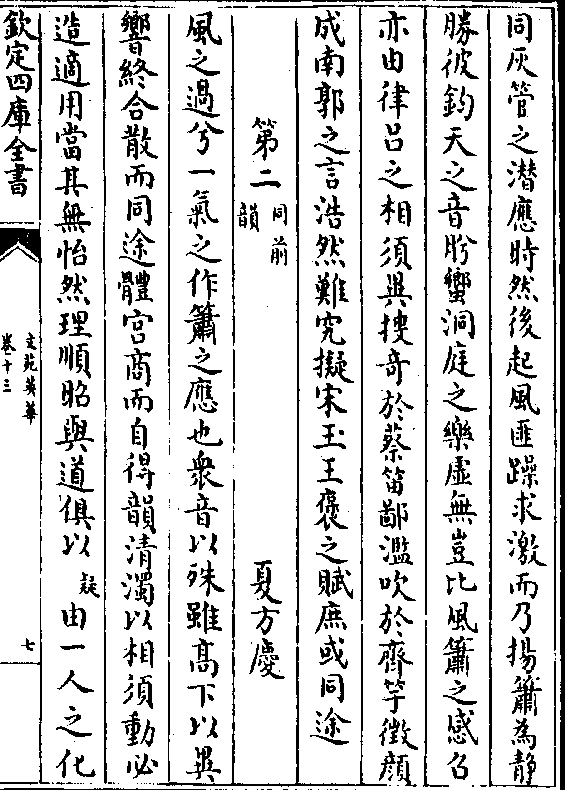 同灰管之潜應時然後起風匪躁求激而乃揚簫為静
勝彼鈞天之音肸蠁洞庭之樂虚無豈比風簫之感召
亦由律吕之相須異搜奇於蔡笛鄙濫吹於齊竽徴顔
成南郭之言浩然難究擬宋玉王褒之賦庶或同途
第二 同前韻 夏方慶
風之過兮一氣之作簫之應也衆音以殊雖髙下以異
響終合散而同途體宫商而自得韻清濁以相須動必
造適用當其無怡然理順昭與道俱以 疑 由一人之化
欽定四庫全書
文苑英華
卷十三
七